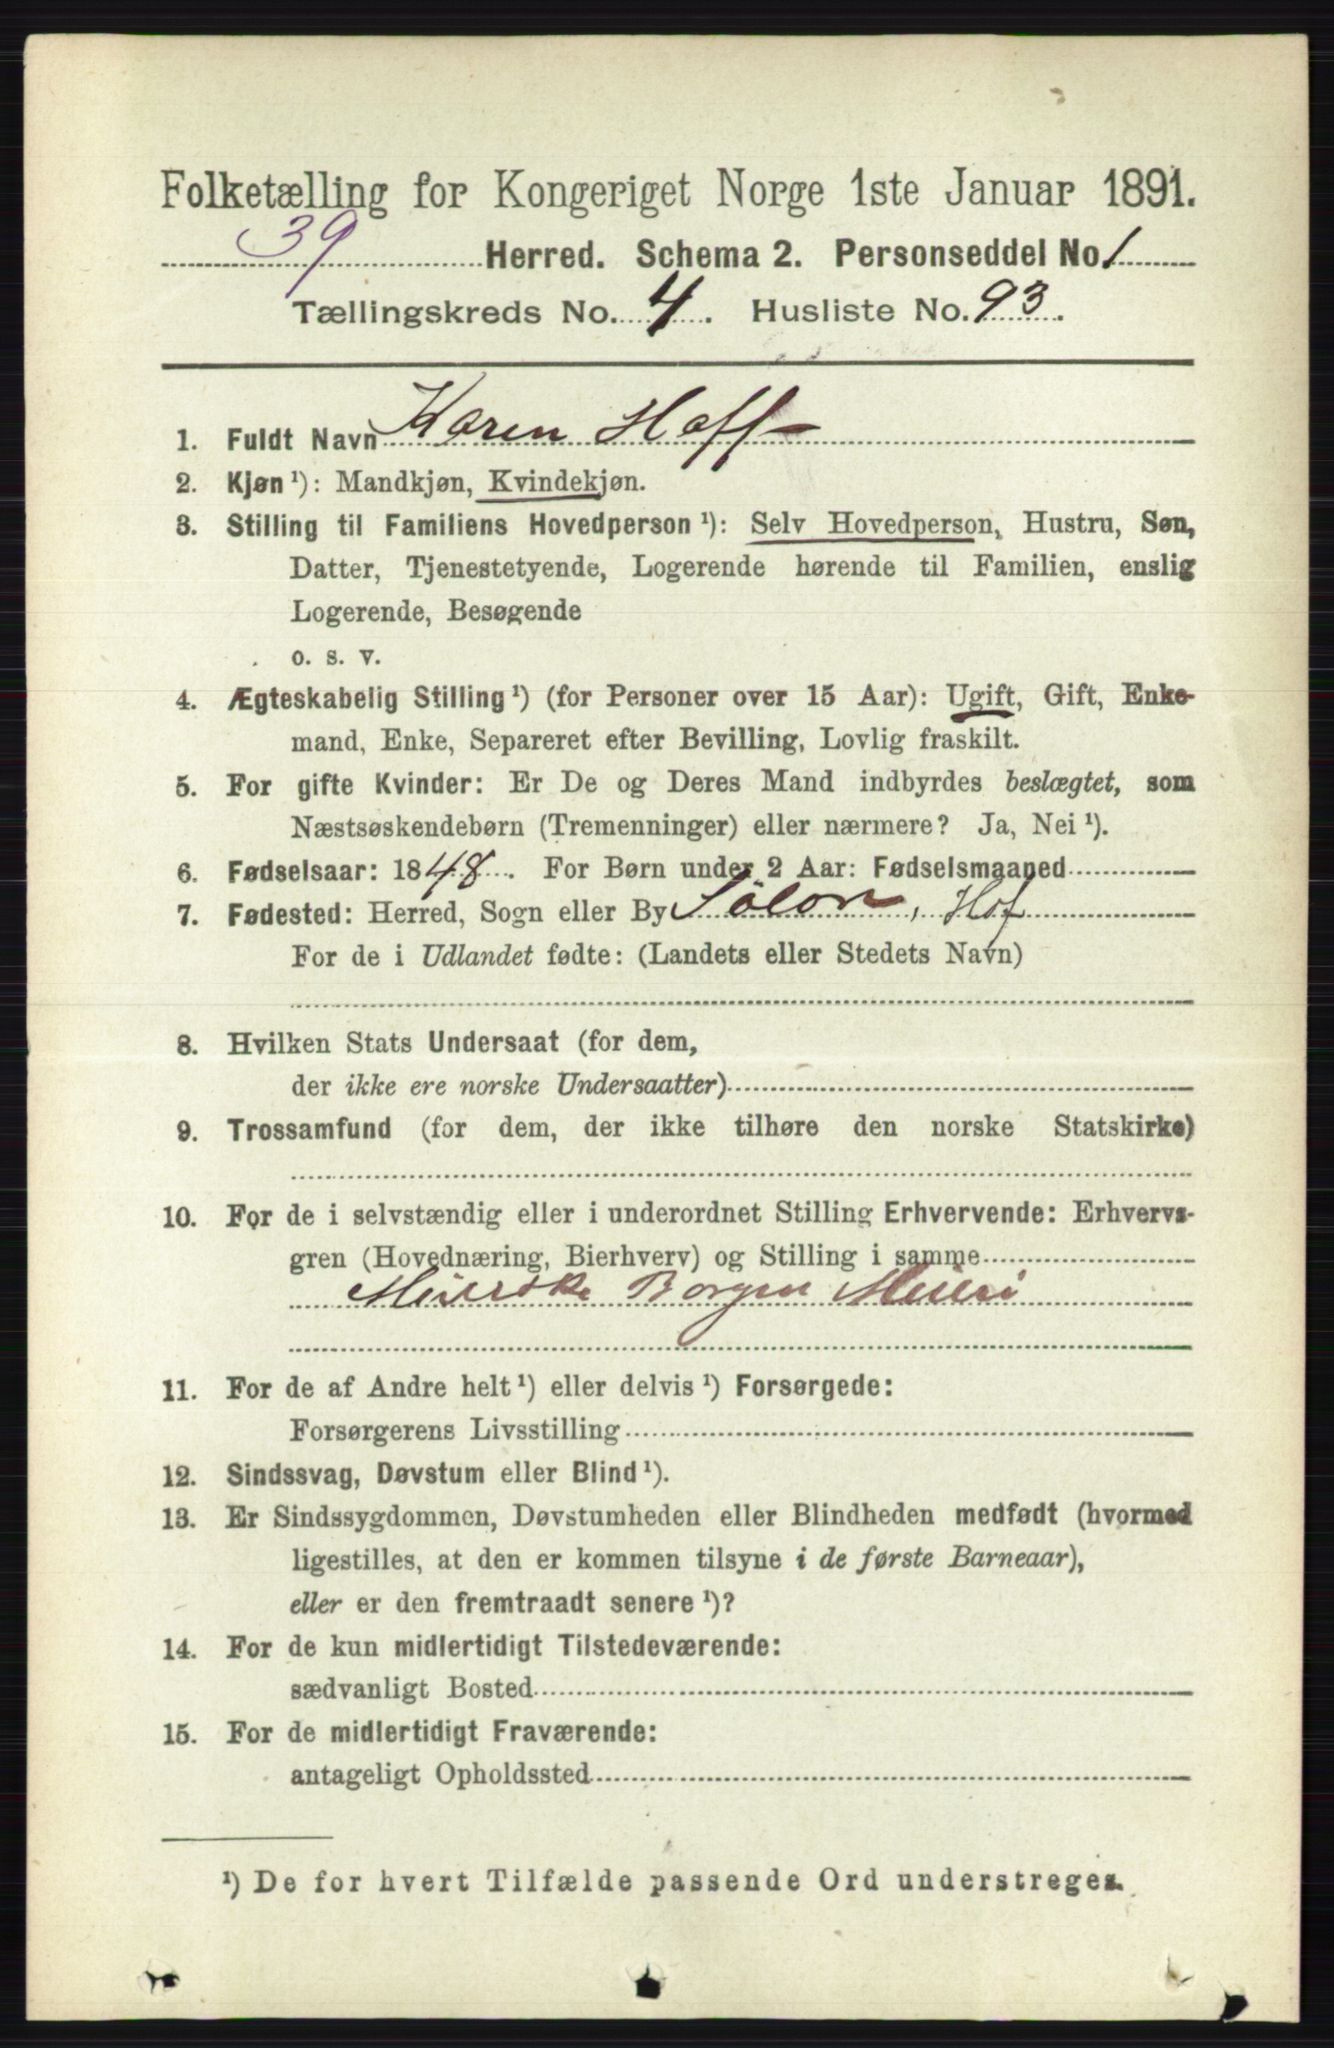 Folketælling for Kongeriget Norge 1ste Januar 1891.
39 Herred. Schema 2. Personseddel No. 1
Tællingskreds No. 4. Husliste No. 93.
1. Fuldt Navn Karen Hoff
2. Kjøn ¹): Mandkjøn, Kvindekjøn.
3. Stilling til Familiens Hovedperson ¹): Selv Hovedperson, Hustru, Søn,
Datter, Tjenestetyende, Logerende hørende til Familien, enslig
Logerende, Besøgende
o. s. v.
4. Ægteskabelig Stilling ¹) (for Personer over 15 Aar): Ugift, Gift, Enke-
mand, Enke, Separeret efter Bevilling, Lovlig fraskilt.
5. For gifte Kvinder: Er De og Deres Mand indbyrdes beslægtet, som
Næstsøskendebørn (Tremenninger) eller nærmere? Ja, Nei ¹).
6. Fødselsaar: 1848. For Børn under 2 Aar: Fødselsmaaned
7. Fødested: Herred, Sogn eller By Sölør, Hof
For de i Udlandet fødte: (Landets eller Stedets Navn)
8. Hvilken Stats Undersaat (for dem,
der ikke ere norske Undersaatter)
9. Trossamfund (for dem, der ikke tilhøre den norske Statskirke)
10. For de i selvstændig eller i underordnet Stilling Erhvervende: Erhvervs-
gren (Hovednæring, Bierhverv) og Stilling i samme
Meierske Borgen Meieri
11. For de af Andre helt ¹) eller delvis ¹) Forsørgede:
Forsørgerens Livsstilling
12. Sindssvag, Døvstum eller Blind ¹).
13. Er Sindssygdommen, Døvstumheden eller Blindheden medfødt (hvormed
ligestilles, at den er kommen tilsyne i de første Barneaar),
eller er den fremtraadt senere ¹)?
14. For de kun midlertidigt Tilstedeværende:
sædvanligt Bosted
15. For de midlertidigt Fraværende:
antageligt Opholdssted
¹) De for hvert Tilfælde passende Ord understreges.